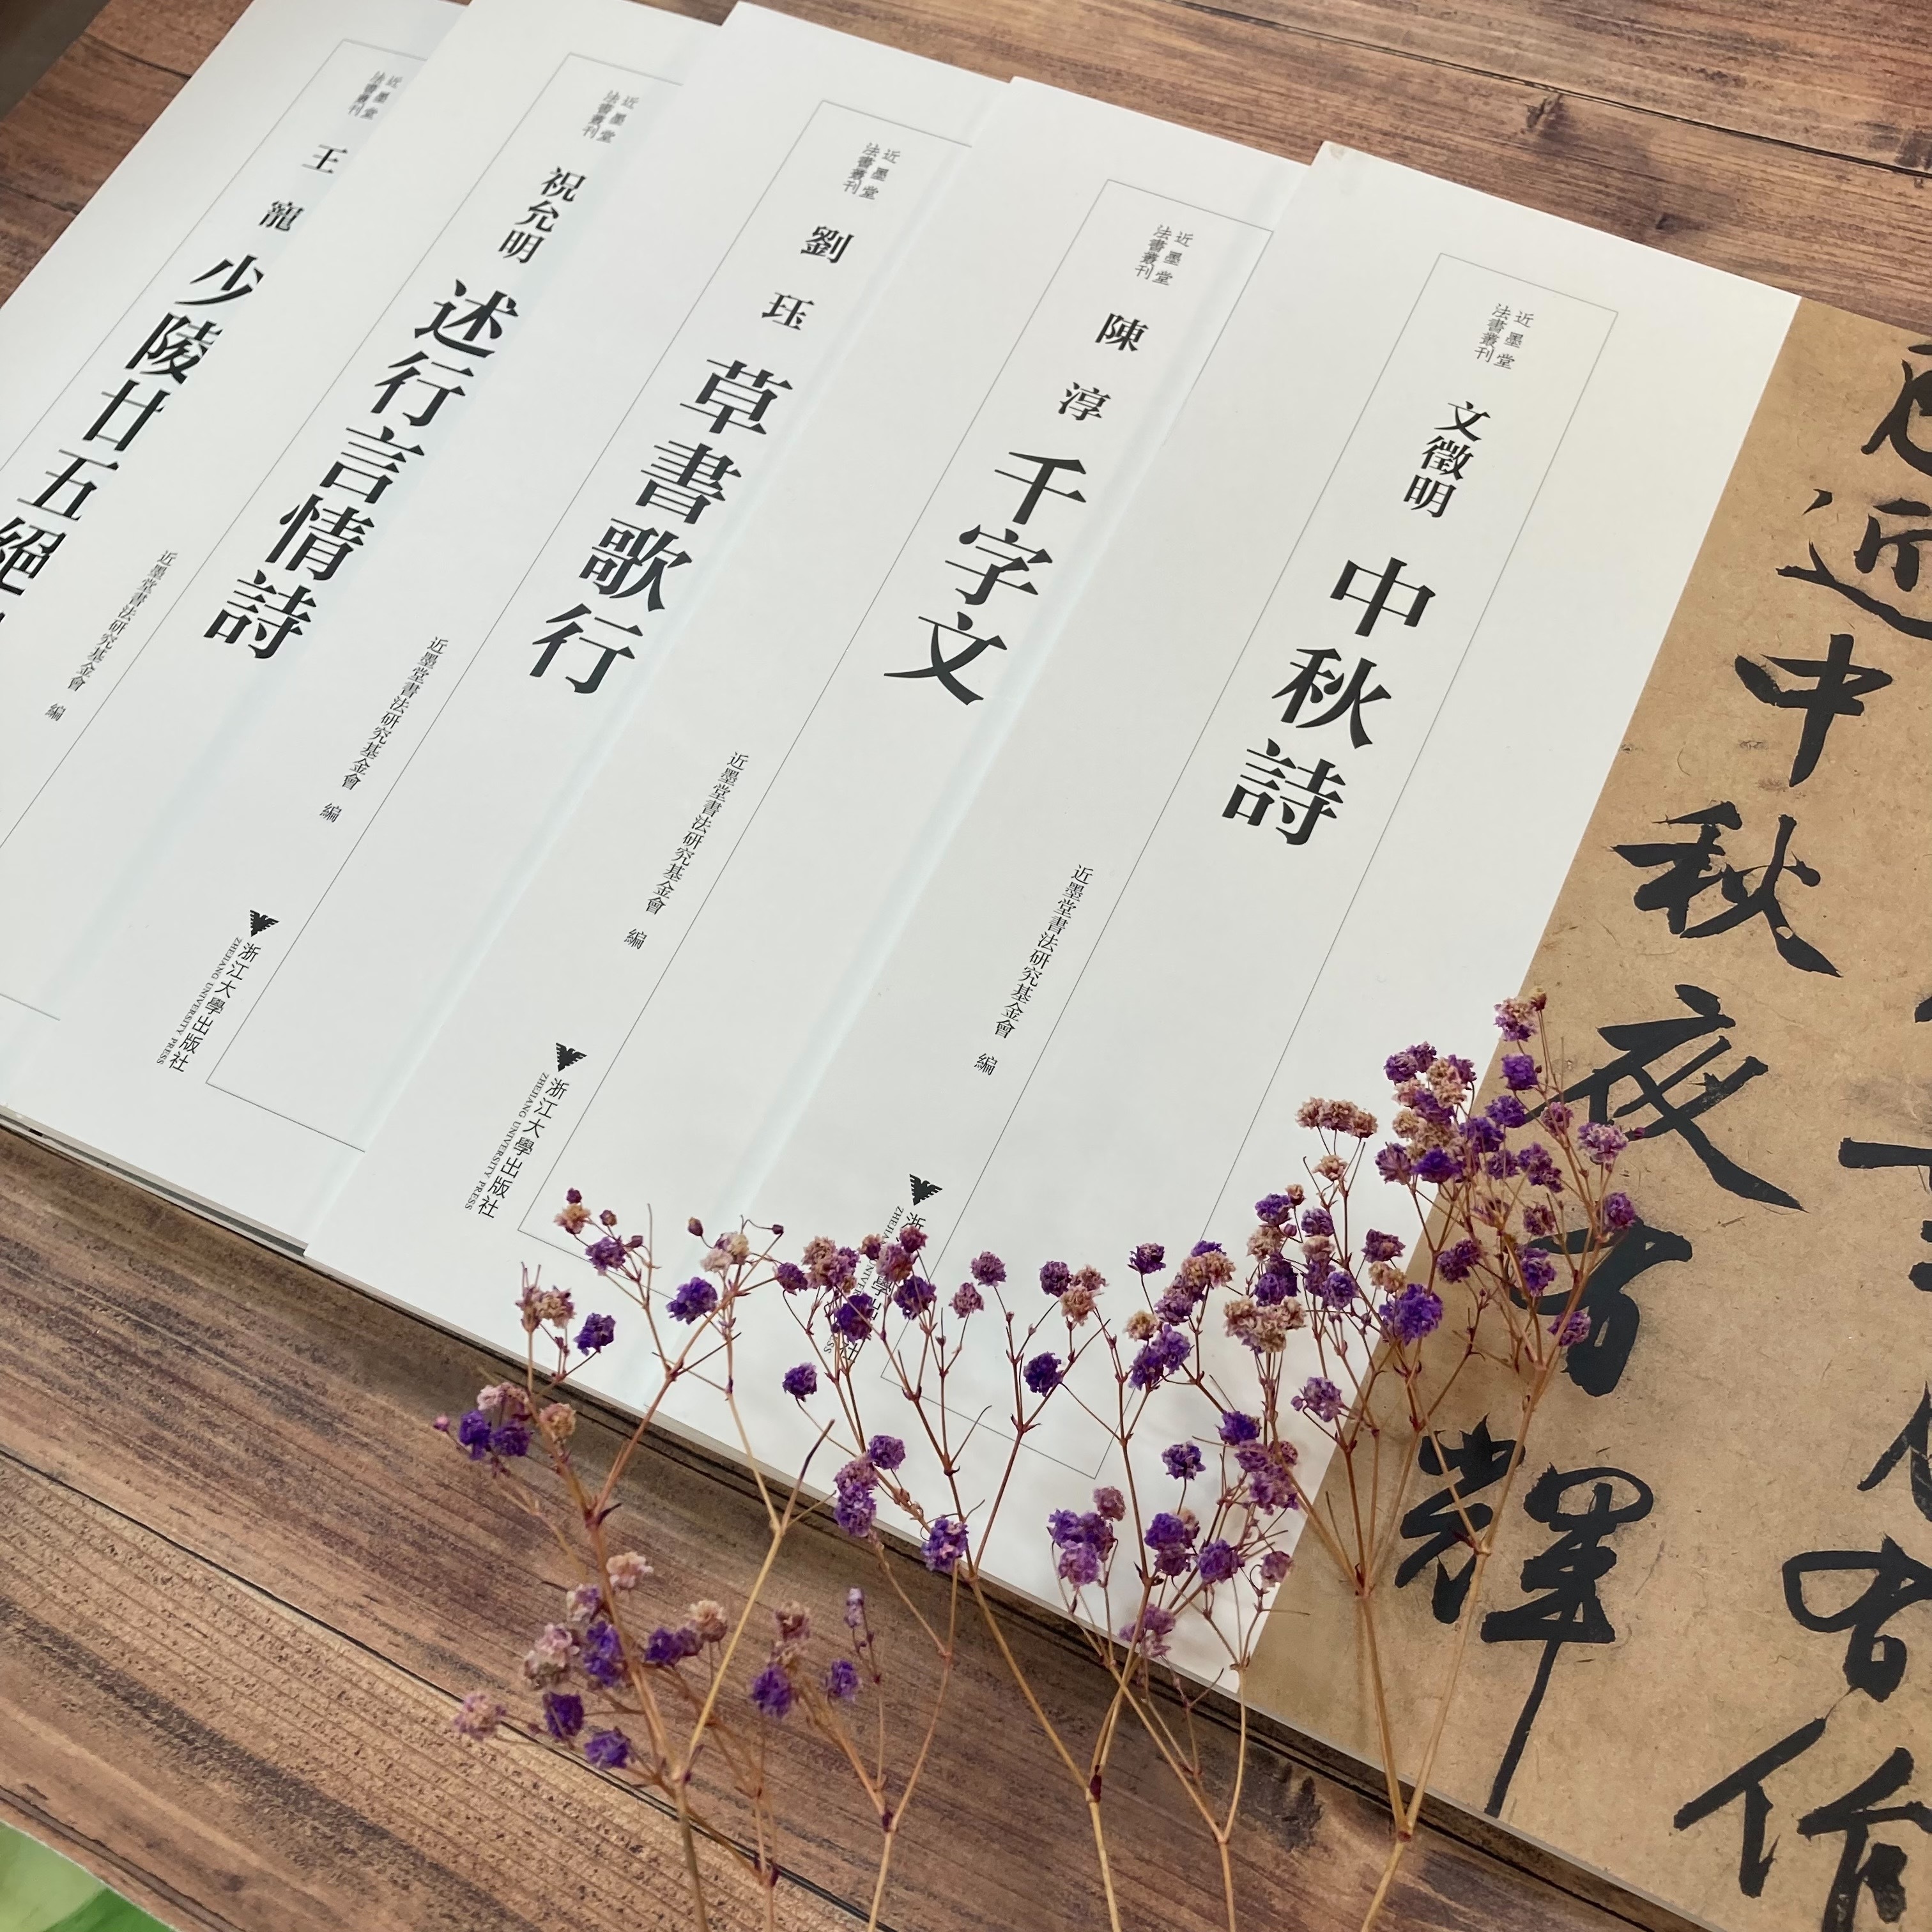 近墨堂
法書叢刊
王寵
少陵廿五絕
近墨堂書法研究基金會 編
近墨堂
法書叢刊
祝允明
述行言情詩
近墨堂書法研究基金會 編
浙江大學出版社
ZHEJIANG UNIVERSITY PRESS
近墨堂
法書叢刊
劉珏
草書歌行
近墨堂書法研究基金會 編
浙江大學出版社
ZHEJIANG UNIVERSITY PRESS
近墨堂
法書叢刊
陳淳
千字文
近墨堂書法研究基金會 編
浙
學出
社
近墨堂
法書叢刊
文徵明
中秋詩
近中秋夜有輝
有作